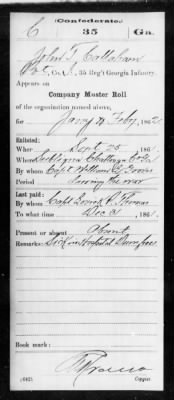 (Confederate.)
C 35 Ga.
John T. Callaham
Co. , 35 Reg't Georgia Infantry.
Appears on
Company Muster Roll
of the organization named above,
for Jany & Feby, 1862.
Enlisted:
When Sept 25, 1861.
Where
By whom Capt William
Period During the war
Last paid:
By whom Capt
To what time Dec 31, 1861.
Present or absent Absent
Remarks: Sick in Hospital
Book mark:
(642)
Copyist.